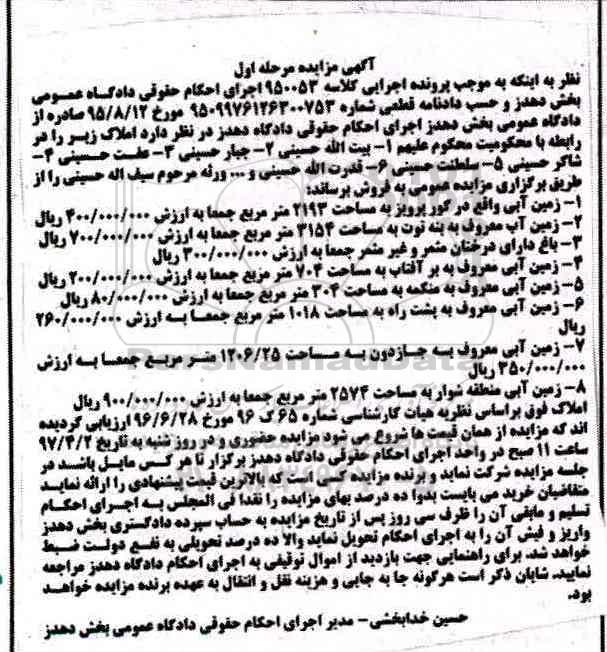 آگهی مزایده مرحله اول
نظر به اینکه به موجب پرونده اجرایی کلاسه ۹۵۰۰۵۳ اجرای احکام حقوقی دادگاه عمومی
بخش دهدز و حسب دادنامه قطعی شماره ۹۵۰۹۹۷۶۱۲۶۳۰۰۷۵۳ مورخ ۹۵/۸/۱۲ صادره از
دادگاه عمومی بخش دهدز اجرای احکام حقوقی دادگاه دهدز در نظر دارد املاک زیر را در
رابطه با محکومیت محکوم علیهم ۱- بیت الله حسینی ۲- جبار حسینی ۳- عفت حسینی ۴-
شاکر حسینی ۵- سلطنت حسینی ۶- قدرت الله حسینی و ... ورثه مرحوم سیف اله حسینی را از
طریق برگزاری مزایده عمومی به فروش برساند:
۱- زمین آبی واقع در کور پرویز به مساحت ۲۱۹۳ متر مربع جمعا به ارزش ۴۰۰/۰۰۰/۰۰۰ ریال
۲- زمین آب معروف به بنه توت به مساحت ۳۱۵۴ متر مربع جمعا به ارزش ۷۰۰/۰۰۰/۰۰۰ ریال
۳- باغ دارای درختان مثمر و غیر مثمر جمعاً به ارزش ۳۰۰/۰۰۰/۰۰۰ ریال
۴- زمین آبی معروف به بر آفتاب به مساحت ۷۰۴ متر مربع جمعا به ارزش ۲۰۰/۰۰۰/۰۰۰ ریال
۵- زمین آبی معروف به منکمه به مساحت ۳۰۴ متر مربع جمعا به ارزش ۸۰/۰۰۰/۰۰۰ ریال
۶- زمین آبی معروف به پشت راه به مساحت ۱۰۱۸ متر مربع جمعا به ارزش ۲۶۰/۰۰۰/۰۰۰
ریال
۷- زمین آبی معروف به جازدون به مساحت ۱۲۰۶/۲۵ متر مربع جمعا به ارزش
۳۵۰/۰۰۰/۰۰۰ ریال
۸- زمین آبی منطقه شوار به مساحت ۲۵۷۴ متر مربع جمعا به ارزش ۹۰۰/۰۰۰/۰۰۰ ریال
املاک فوق بر اساس نظریه هیات کارشناسی شماره ۶۵ ک ۹۶ مورخ ۹۶/۶/۲۸ ارزیابی گردیده
اند که مزایده از همان قیمت ها شروع می شود مزایده حضوری و در روز شنبه به تاریخ ۹۷/۴/۲
ساعت ۱۱ صبح در واحد اجرای احکام حقوقی دادگاه دهدز برگزار تا هر کس مایل باشد در
جلسه مزایده شرکت نماید و برنده مزایده کسی است که بالاترین قیمت پیشنهادی را ارائه نماید
متقاضیان خرید می بایست بدوا ده درصد بهای مزایده را نقدا فی المجلس به اجرای احکام
تسلیم و مابقی آن را ظرف سی روز پس از تاریخ مزایده به حساب سپرده دادگستری بخش دهدز
واریز و فیش آن را به اجرای احکام تحویل نماید والا ده درصد تحویلی به نفع دولت ضبط
خواهد شد. برای راهنمایی جهت بازدید از اموال توقیفی به اجرای احکام دادگاه دهدز مراجعه
نمایید. شایان ذکر است هرگونه جا به جایی و هزینه نقل و انتقال به عهده برنده مزایده خواهد
بود.
حسین خدابخشی - مدیر اجرای احکام حقوقی دادگاه عمومی بخش دهدز
ParsNamadData